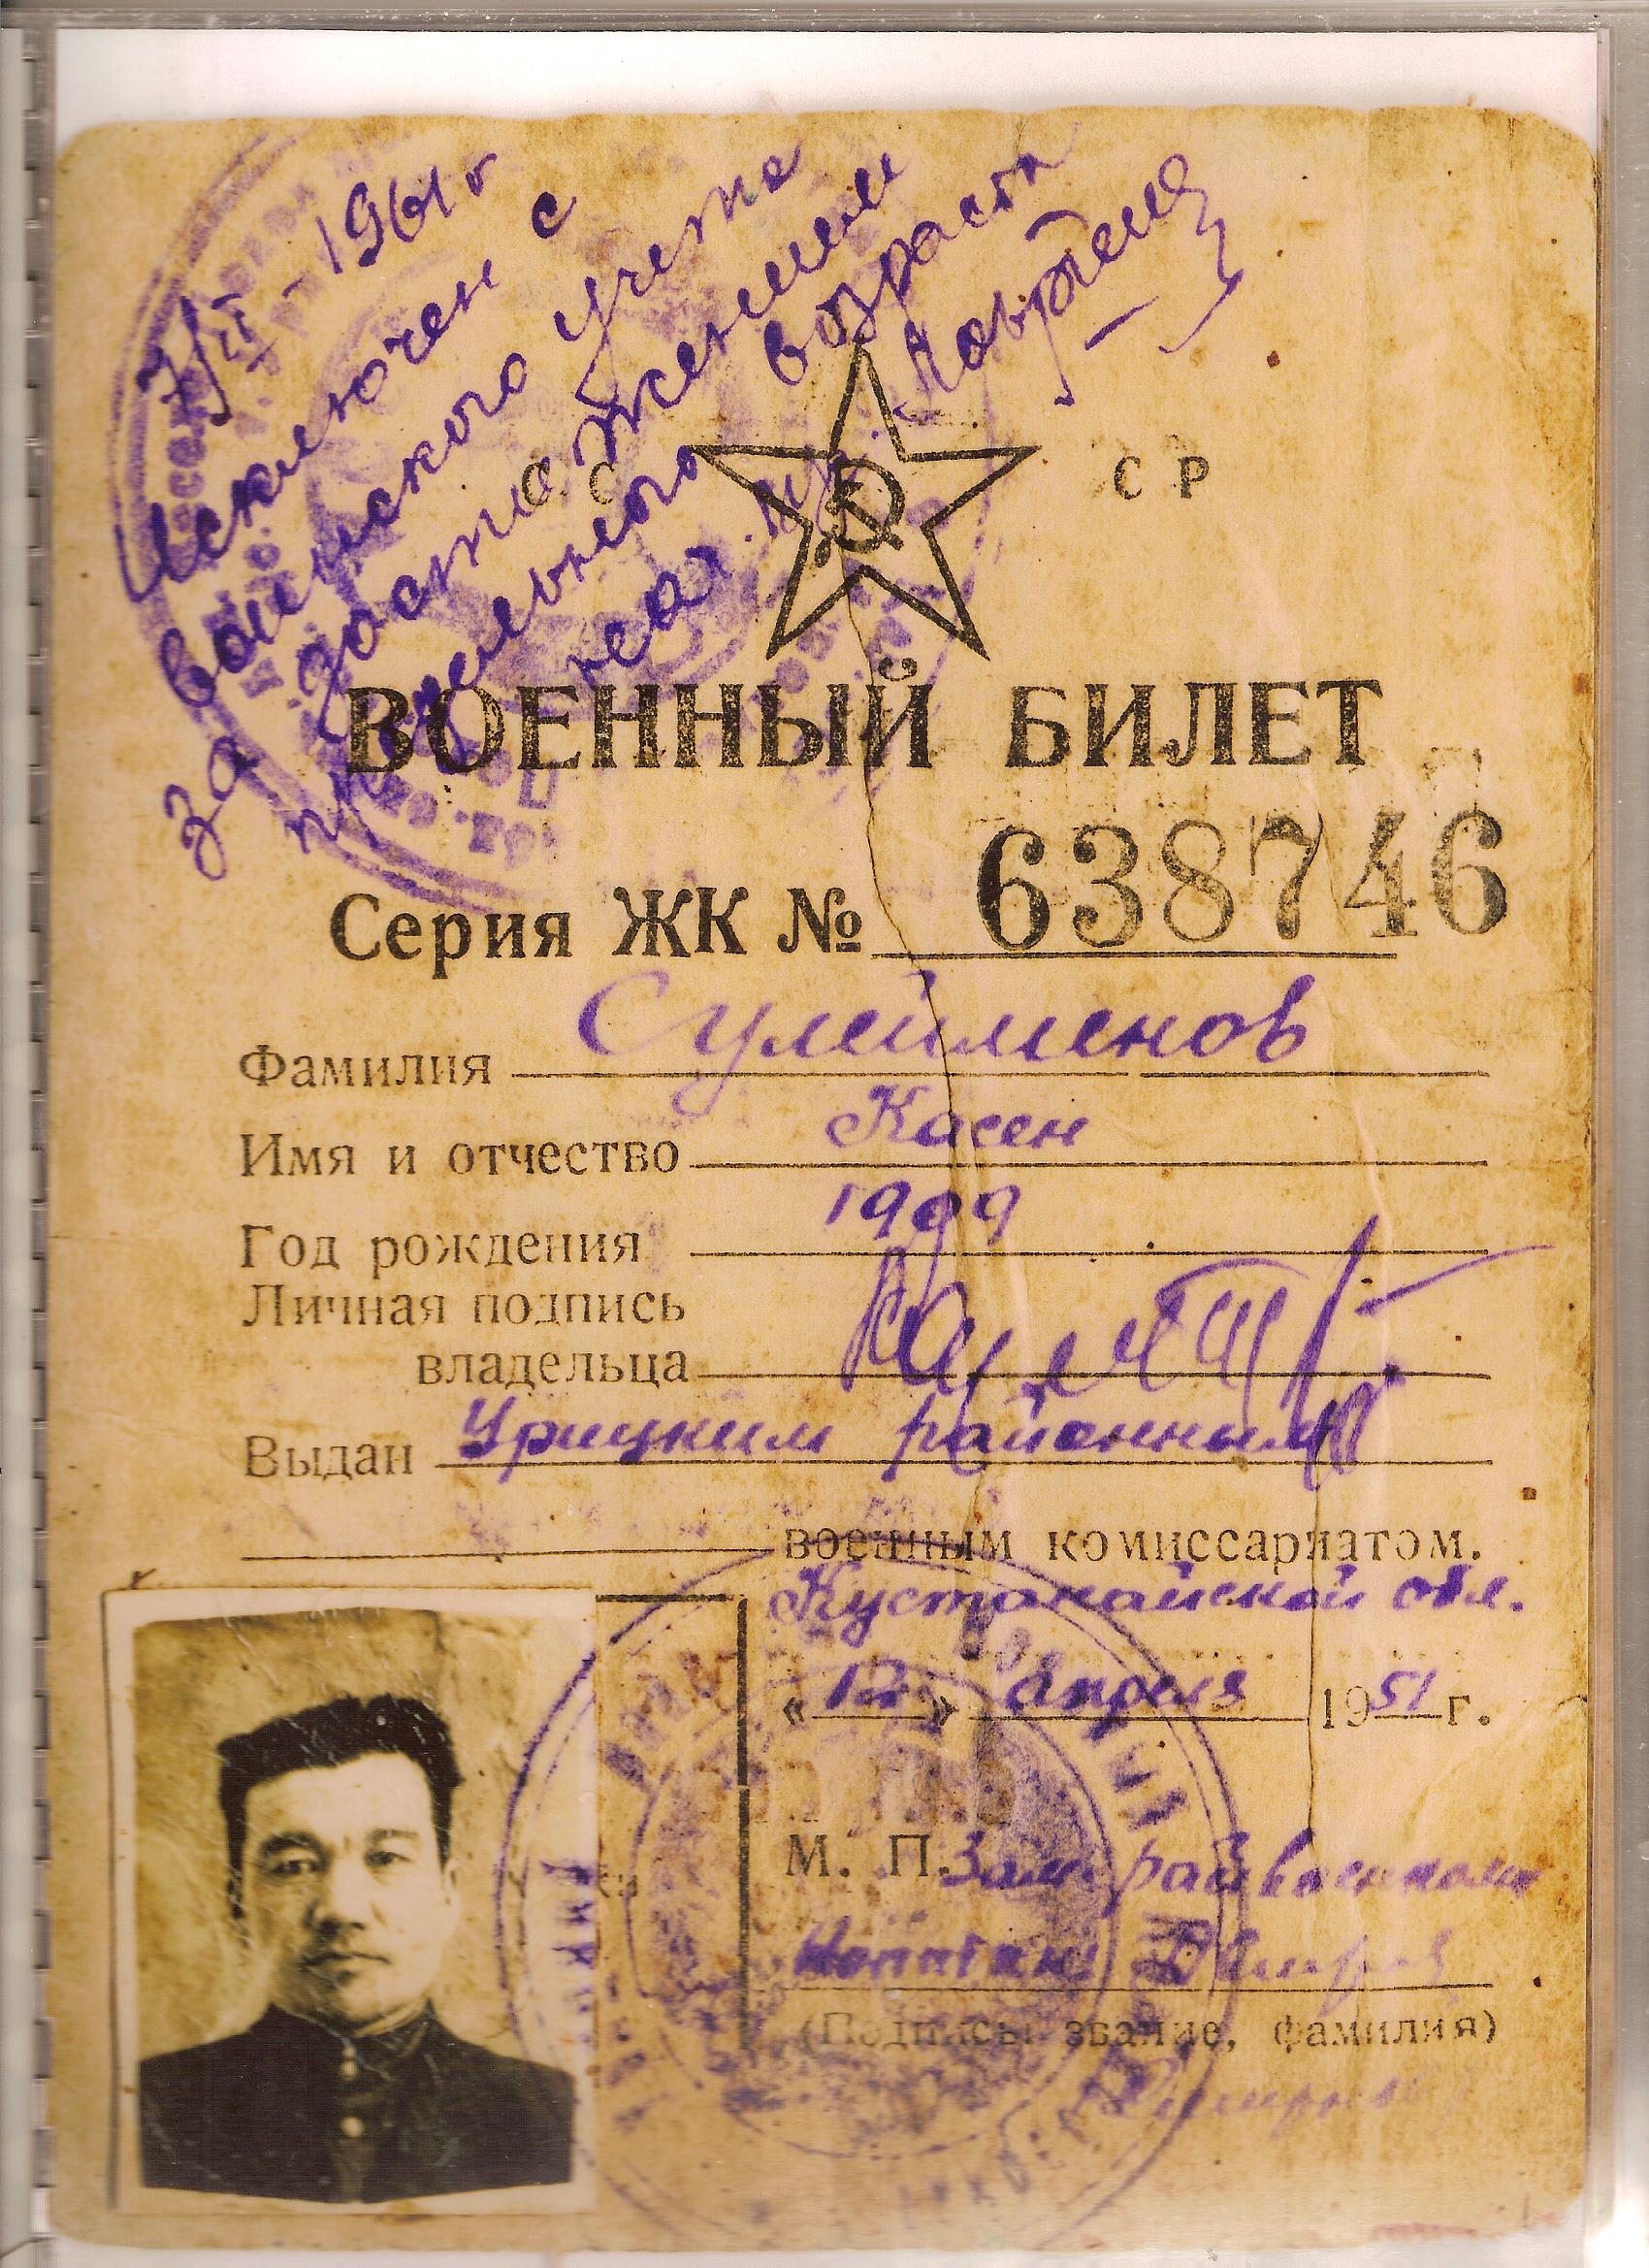 7/II - 1961 г
Исключен с
воинского учета
за достижением
предельного возраста
С С С Р
ВОЕННЫЙ БИЛЕТ
Серия ЖК № 638746
Фамилия Сулейменов
Имя и отчество Касен
Год рождения 1909
Личная подпись
владельца
Выдан Урицким районным
военным комиссариатом.
Кустанайской обл.
« 12 » апреля 1951 г.
М. П. Зам. райвоенкома
Капитан
(Подпись, звание, фамилия)